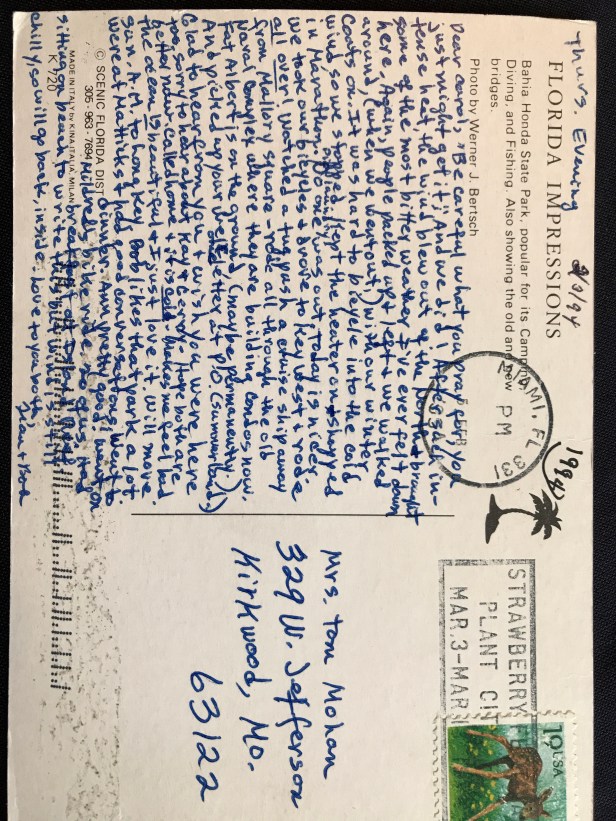 Thurs. Evening
2/3/94
FLORIDA IMPRESSIONS
Bahia Honda State Park, popular for its Camping,
Diving, and Fishing. Also showing the old and new
bridges.
Photo by Werner J. Bertsch
© SCENIC FLORIDA DIST.
305-963-7694
MADE IN ITALY by KINA ITALIA, MILAN
K 420
Dear Carol, "Be careful what you pray for you
just might get it"! And we did! After such in-
tense heat, the wind blew out of the North & brought
some of the most bitter weather I've ever felt down
here. Again, people packed up & left & we walked
around (when we went out) with our winter
coats on. It was hard to bicycle into the cold
wind so we stopped & kept the heater on & shopped
in Marathon. No one was out. Today is nicer,
we took our bicycles & drove to Key West & rode
all over! Watched a tug push a cruise ship away
from Mallory Square - rode all through the old
Naval Complex where they are building condos now.
Fat Albert is on the ground (maybe permanently).
And picked up your letter at P.O. (Summerland).
Glad to hear from you & wish you were here
too, sorry to hear about Kay & Hope both are
better now. Called home & it is cold. Makes me feel bad
the ocean is beautiful & I just love it, will move
sun. A.M. to Long Key. Bob likes that park a lot.
were at & had good conversation, went to
dinner Ann pretty good went on
bike ride
sitting on beach to write this but
chilly, so will go back, inside. Love to you both,
& Bob
MIAMI, FL
PM
FEB
331
1994
STRAWBERRY
PLANT CIT
MAR. 3-MAR
19 USA
Mrs. Tom Mohan
329 W. Jefferson
Kirkwood, Mo.
63122